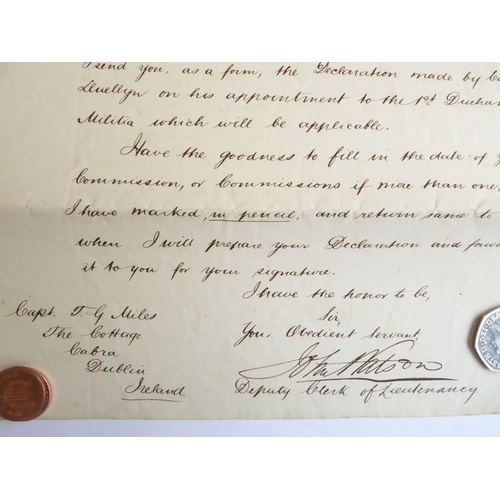 I send you, as a form, the Declaration made by
Llewellyn on his appointment to the 1st Durha
Militia which will be applicable.
Have the goodness to fill in the date of
Commission, or Commissions if more than one,
I have marked, in pencil, and return same to
when I will prepare your Declaration and forwa
it to you for your signature.
I have the honor to be,
Sir,
Your Obedient Servant,
John Watson
Deputy Clerk of Lieutenancy
Capt. T. G Miles
The Cottage
Cabra
Dublin
Ireland